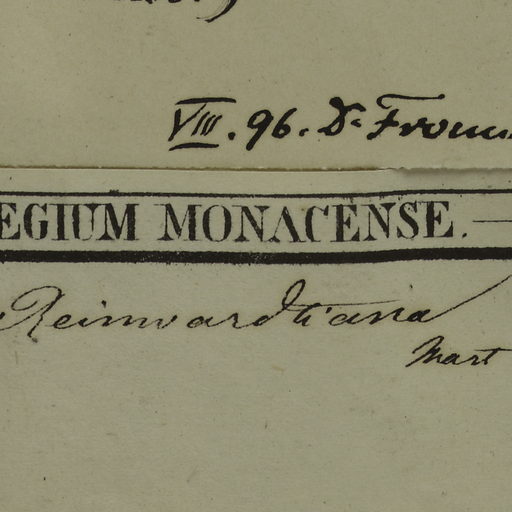 VIII. 96. Dr
EGIUM MONACENSE.
Reinwardtiana
Mart